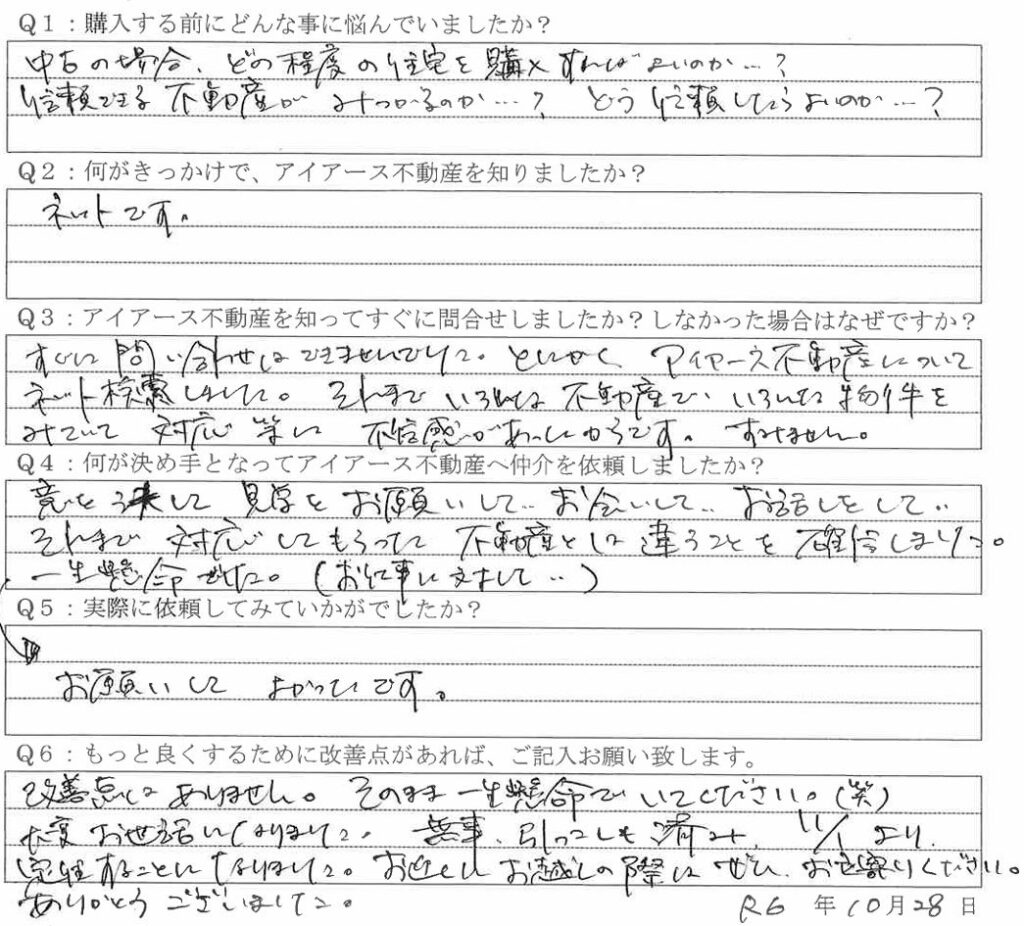 Q1：購入する前にどんな事に悩んでいましたか？
中古の場合、どの程度の住宅を購入すればよいのか…？
信頼できる不動産がみつかるのか…？ どう信頼したらよいのか…？
Q2：何がきっかけで、アイアース不動産を知りましたか？
ネットです。
Q3：アイアース不動産を知ってすぐに問合せしましたか？しなかった場合はなぜですか？
すぐに問い合わせはできませんでした。とにかく アイアース不動産について
ネット検索しました。それまでいろんな不動産でいろんな物件を
みていて 対応等に 不信感があったからです。すみません。
Q4：何が決め手となってアイアース不動産へ仲介を依頼しましたか？
意を決して 見学をお願いして‥お会いして‥お話しをして‥
それまで対応してもらった 不動産とは違うことを確信しました。
一生懸命でした。（お仕事に対して‥）
Q5：実際に依頼してみていかがでしたか？
お願いして よかったです。
Q6：もっと良くするために改善点があれば、ご記入お願い致します。
改善点はありません。そのまま一生懸命でいてください。（笑）
大変お世話になりました。無事、引っこしも済み、11/1より、
定住することになりました。お近くにお越しの際はぜひ、お立寄りください。
ありがとうございました。 R6 年10月28日